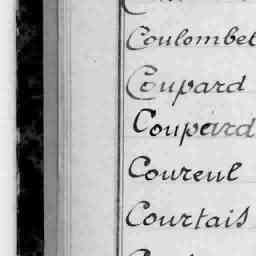 Coulombel
Coupard
Coupard
Coureul
Courtais